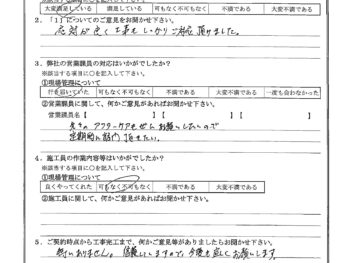 大変満足している 満足している 可もなく不可もなく 不満である 大変不満である
2．「1」についてのご意見をお聞かせ下さい。
応対が良く工事もしっかりご対応頂けました。
3．弊社の営業職員の対応はいかがでしたか？
※該当する項目に○を記入して下さい。
①現場管理について
行き届いていた 可もなく不可もなく 不満である 大変不満である 一度も会わなかった
②営業職員に関して、何かご意見があればお聞かせ下さい。
営業職員名【 】【 】【 】
先々のアフターケアもぜひお願いしたいので
定期的に訪問頂きたい。
4．施工員の作業内容等はいかがでしたか？
※該当する項目に○を記入して下さい。
①現場管理について
良くやってくれた 可もなく不可もなく 不満である 大変不満である
②施工員に関して、何かご意見があればお聞かせ下さい。
5．ご契約時点から工事完工まで、何かご意見等がありましたらお聞かせ下さい。
特にありません。信頼していますので、今後も宜しくお願いします。